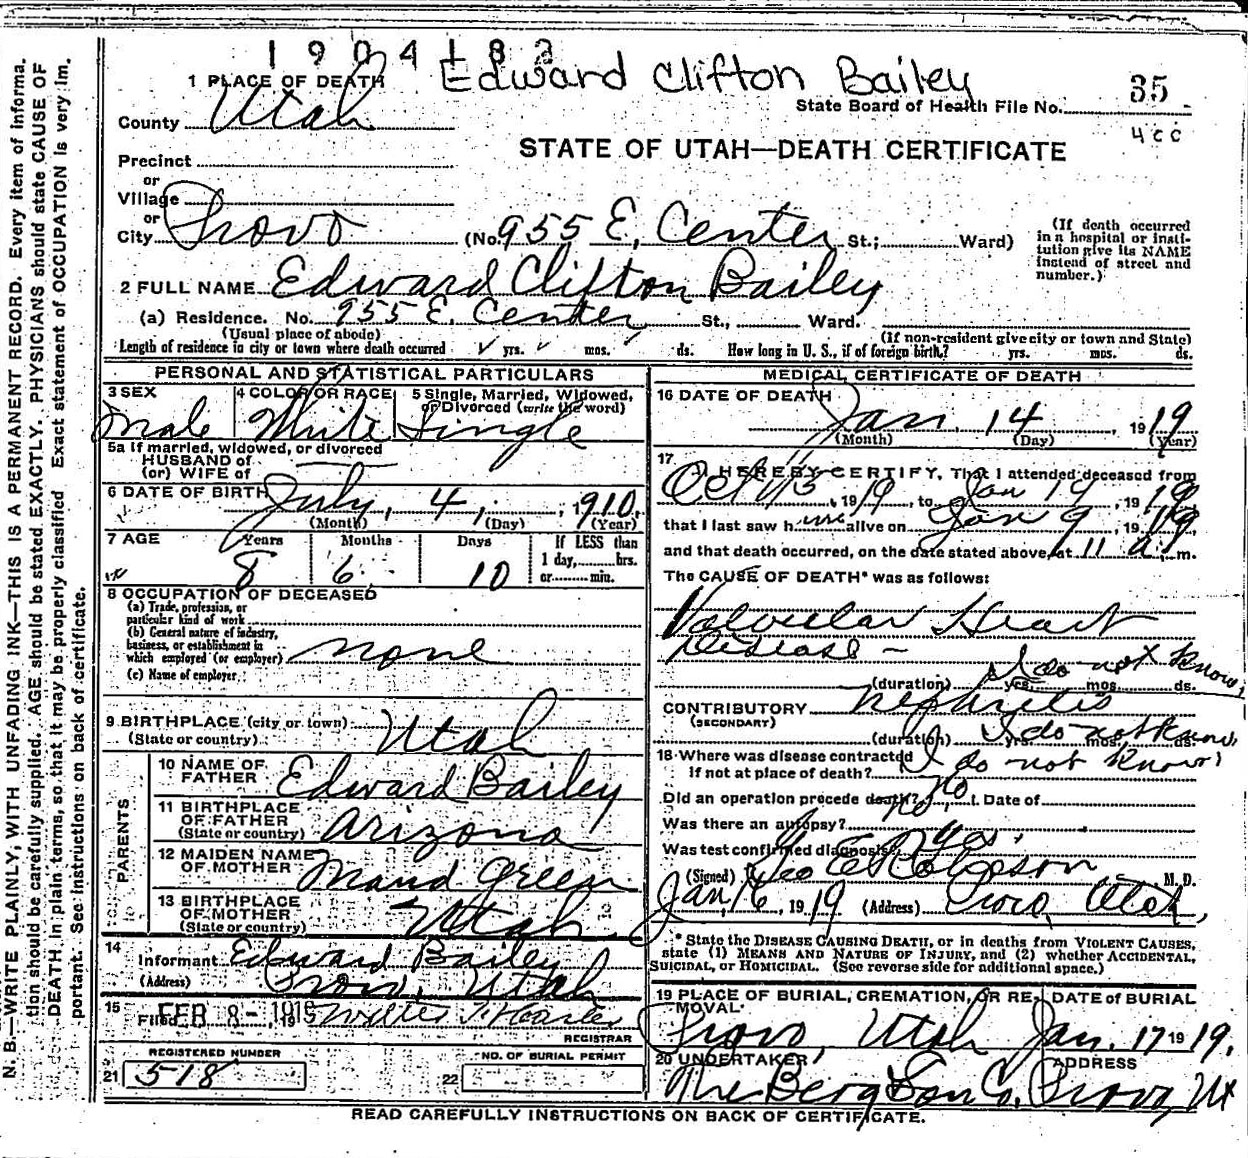 1904182
Edward Clifton Bailey
1 PLACE OF DEATH
State Board of Health File No. 35
County Utah
4cc
STATE OF UTAH—DEATH CERTIFICATE
Precinct
or
Village
or
City Provo (No. 955 E. Center St.; Ward)
(If death occurred in a hospital or institution give its NAME instead of street and number.)
2 FULL NAME Edward Clifton Bailey
(a) Residence. No. 955 E. Center St., Ward.
(Usual place of abode) (If non-resident give city or town and State)
Length of residence in city or town where death occurred yrs. mos. ds. How long in U. S., if of foreign birth? yrs. mos. ds.
PERSONAL AND STATISTICAL PARTICULARS
3 SEX 4 COLOR OR RACE 5 Single, Married, Widowed, or Divorced (write the word)
Male White Single
5a If married, widowed, or divorced
HUSBAND of
(or) WIFE of
6 DATE OF BIRTH July, 4, 1910
(Month) (Day) (Year)
7 AGE Years Months Days If LESS than
1 day, hrs.
or min.
8 6 10
8 OCCUPATION OF DECEASED
(a) Trade, profession, or
particular kind of work
(b) General nature of industry,
business, or establishment in
which employed (or employer) none
(c) Name of employer
9 BIRTHPLACE (city or town)
(State or country) Utah
PARENTS
10 NAME OF FATHER Edward Bailey
11 BIRTHPLACE OF FATHER (State or country) Arizona
12 MAIDEN NAME OF MOTHER Maud Green
13 BIRTHPLACE OF MOTHER (State or country) Utah
14
Informant Edward Bailey
(Address) Provo, Utah
15
Filed FEB 8 - 1919, 19
REGISTRAR
REGISTERED NUMBER
21 518
NO. OF BURIAL PERMIT
22
MEDICAL CERTIFICATE OF DEATH
16 DATE OF DEATH
Jan. 14, 1919
(Month) (Day) (Year)
17 I HEREBY CERTIFY, That I attended deceased from
Oct, 1919, to Jan 14, 1919
that I last saw him alive on Jan 9, 1919
and that death occurred, on the date stated above, at 11 a. m.
The CAUSE OF DEATH* was as follows:
Valvular Heart
Disease —
(duration) yrs. mos. ds. I do not know
CONTRIBUTORY Nephritis
(SECONDARY)
(duration) yrs. mos. ds. I do not know
18 Where was disease contracted
If not at place of death? I do not know
Did an operation precede death? No. Date of
Was there an autopsy? No
Was test confirmed diagnosis? Yes.
(Signed) Geo E Robison M. D.
Jan, 16, 1919 (Address) Provo, Utah,
* State the DISEASE CAUSING DEATH, or in deaths from VIOLENT CAUSES,
state (1) MEANS AND NATURE OF INJURY, and (2) whether ACCIDENTAL,
SUICIDAL, or HOMICIDAL. (See reverse side for additional space.)
19 PLACE OF BURIAL, CREMATION, OR REMOVAL DATE of BURIAL
Provo, Utah Jan. 17 1919.
20 UNDERTAKER ADDRESS
The Berg Son Co. Provo, Ut
READ CAREFULLY INSTRUCTIONS ON BACK OF CERTIFICATE.
N. B.—WRITE PLAINLY, WITH UNFADING INK—THIS IS A PERMANENT RECORD. Every item of information should be carefully supplied. AGE should be stated EXACTLY. PHYSICIANS should state CAUSE OF DEATH in plain terms, so that it may be properly classified. Exact statement of OCCUPATION is very important. See instructions on back of certificate.